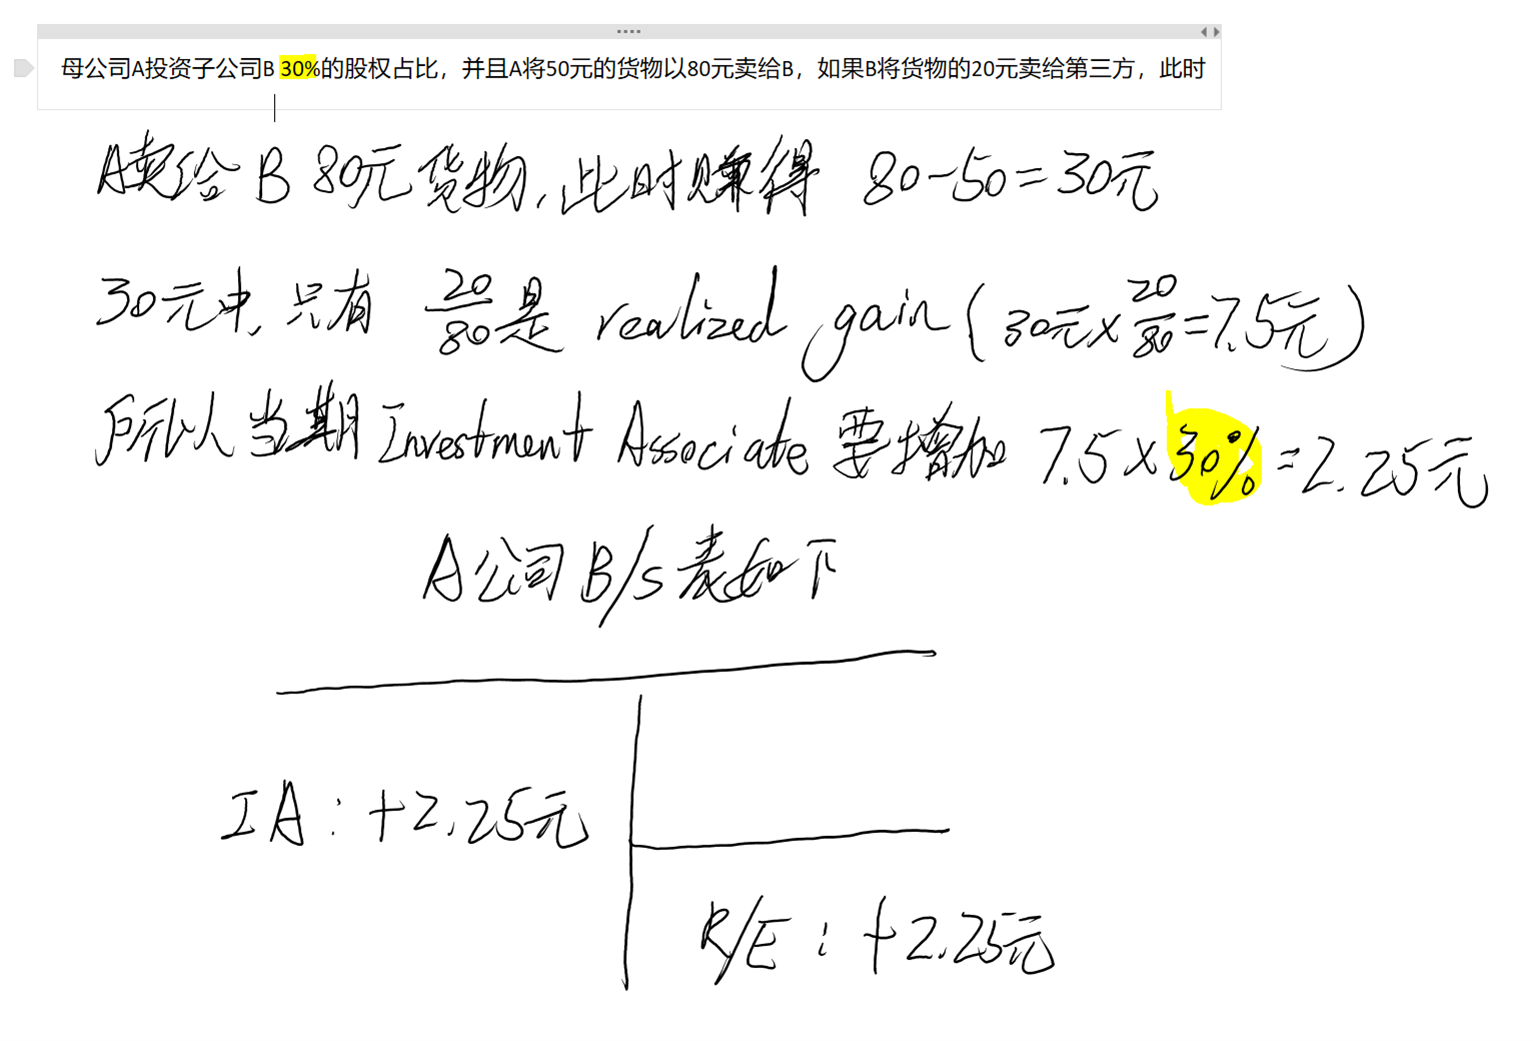 母公司A投资子公司B 30%的股权占比，并且A将50元的货物以80元卖给B，如果B将货物的20元卖给第三方，此时
A卖给B 80元货物，此时赚得 80-50=30元
30元中，只有 20/80 是 realized gain (30元×20/80=7.5元)
所以当期 Investment Associate 要增加 7.5×30%=2.25元
A公司 B/S 表如下
IA：+2.25元
R/E：+2.25元